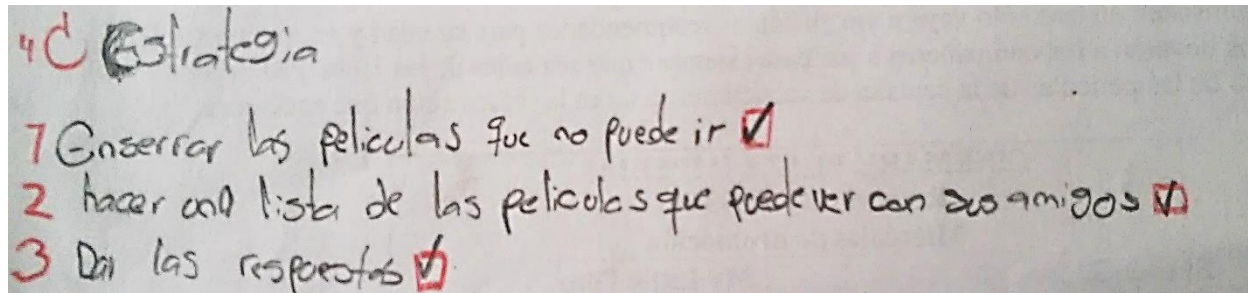 4C Estrategia
1 Enserrar las peliculas que no puede ir ☑
2 hacer una lista de las peliculas que puede ver con sus amigos ☑
3 Dar las respuestas ☑